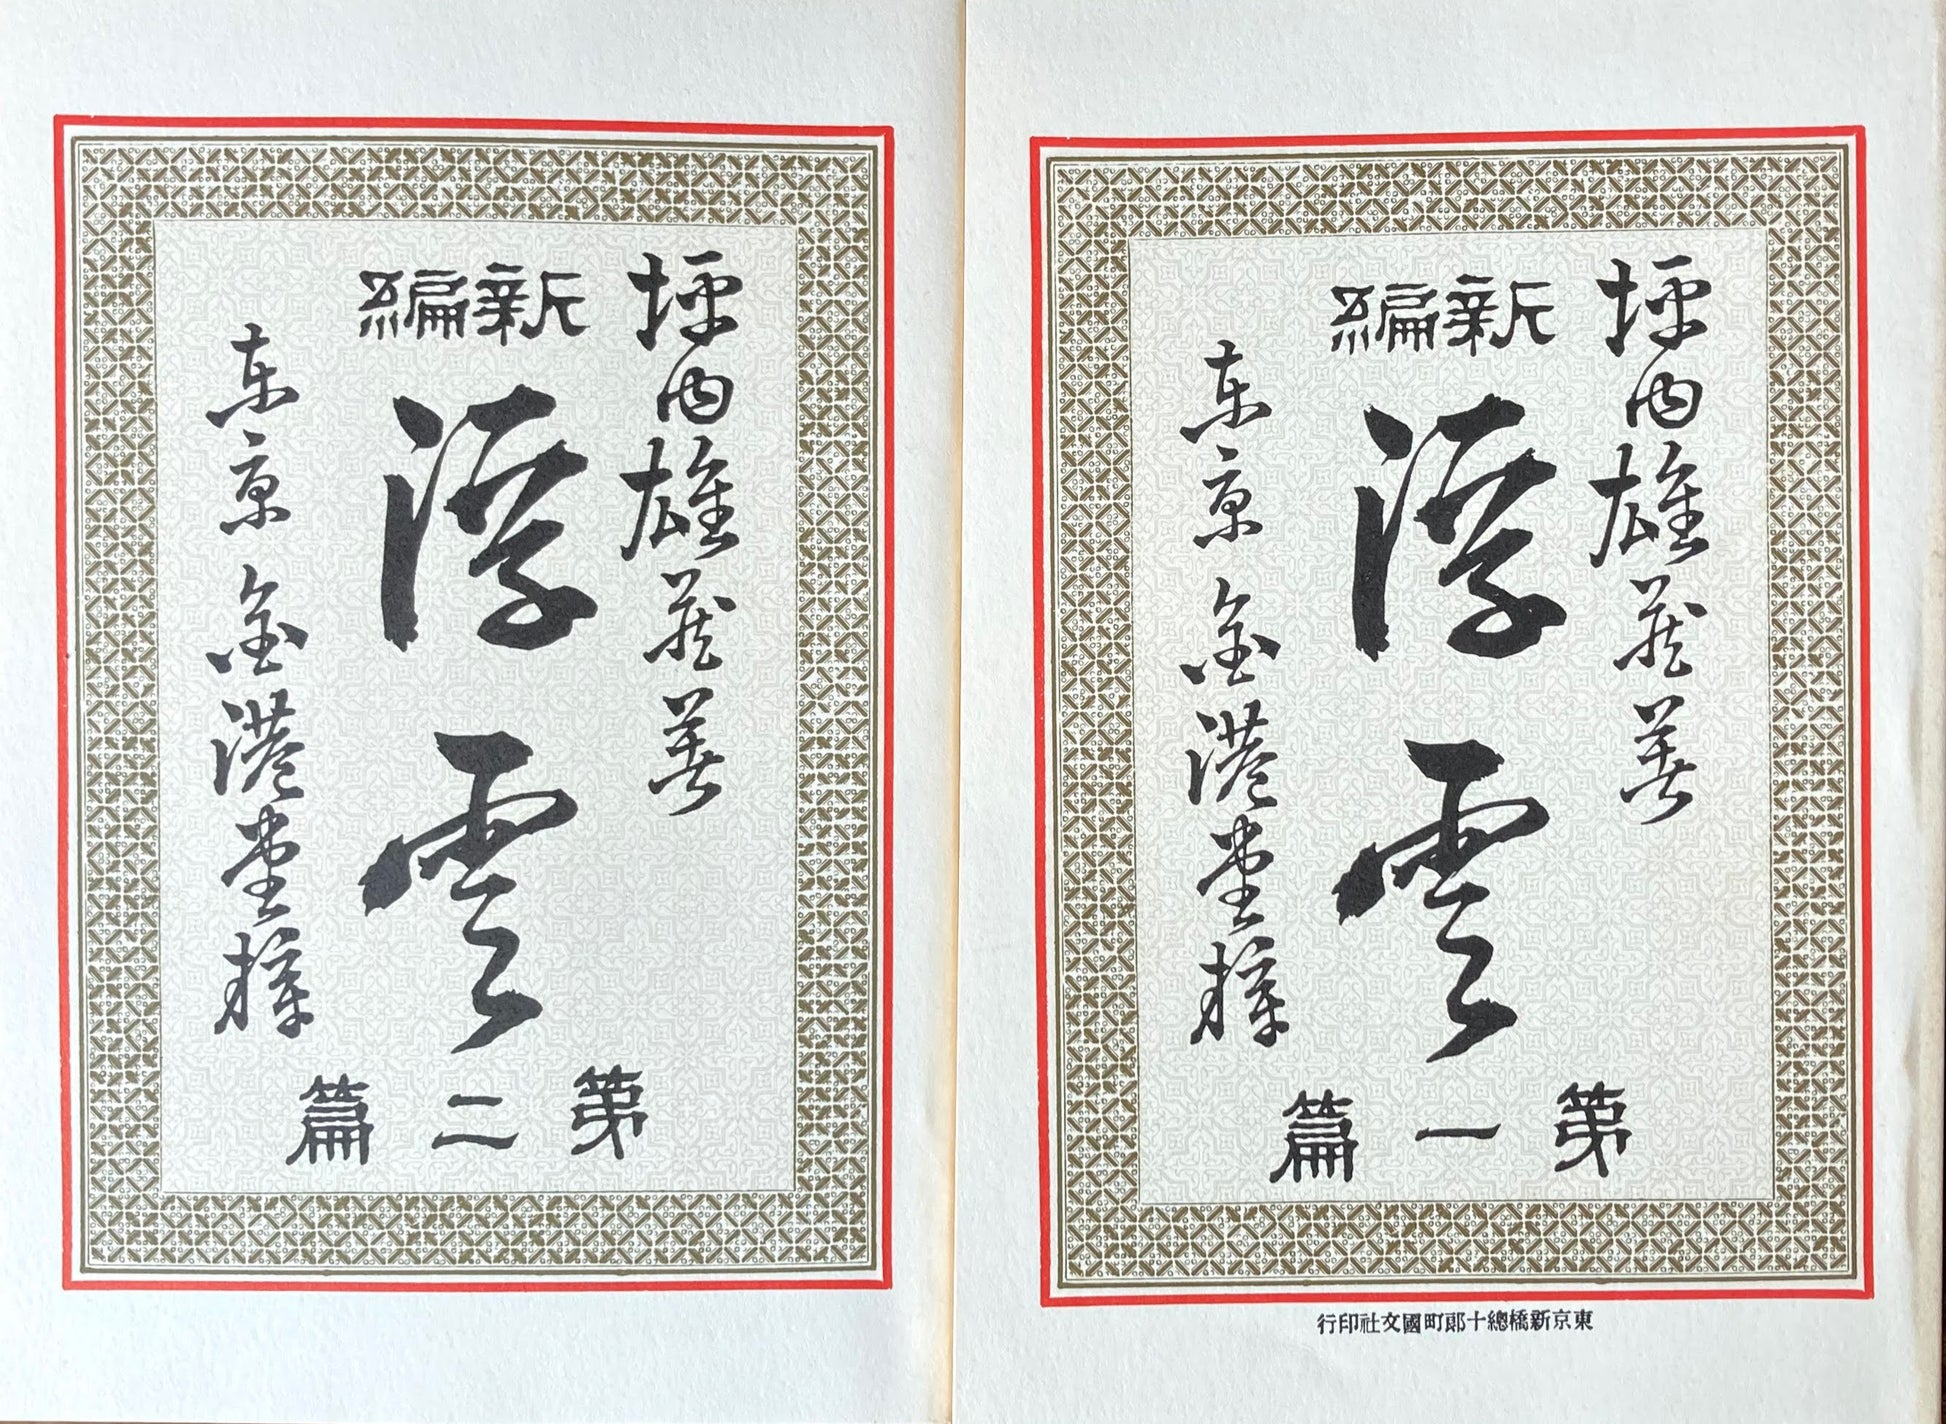 坪内雄蔵著
新編
浮雲
第一篇
東京 金港堂梓
東京新橋總十郎町國文社印行
坪内雄蔵著
新編
浮雲
第二篇
東京 金港堂梓